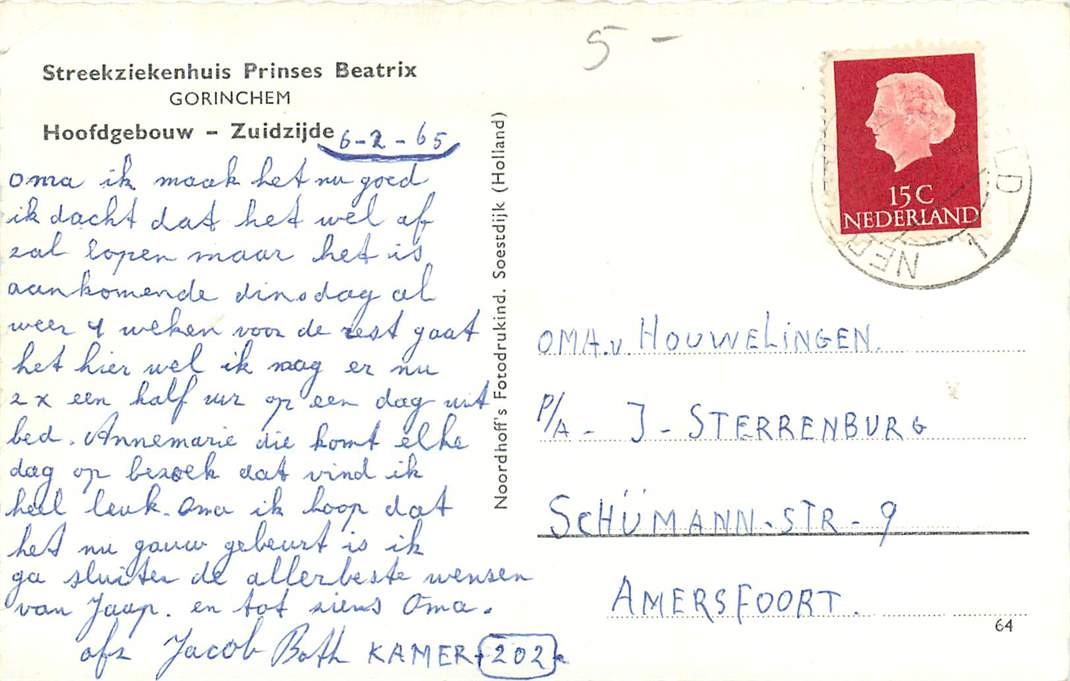 5 -
Streekziekenhuis Prinses Beatrix
GORINCHEM
Hoofdgebouw – Zuidzijde
6-2-65
oma ik maak het nu goed
ik dacht dat het wel af
zal lopen maar het is
aankomende dinsdag al
weer 4 weken voor de rest gaat
het hier wel ik mag er nu
2 x een half uur op een dag uit
bed. Annemarie die komt elke
dag op bezoek dat vind ik
heel leuk. Oma ik hoop dat
het nu gauw gebeurt is ik
ga sluiten de allerbeste wensen
van Jaap. en tot ziens Oma.
afz Jacob Both KAMER 202
Noordhoff's Fotodrukind. Soestdijk (Holland)
15 C
NEDERLAND
OMA. v HOUWELINGEN.
P/A - J - STERRENBURG
SCHÜMANN-STR - 9
AMERSFOORT.
64